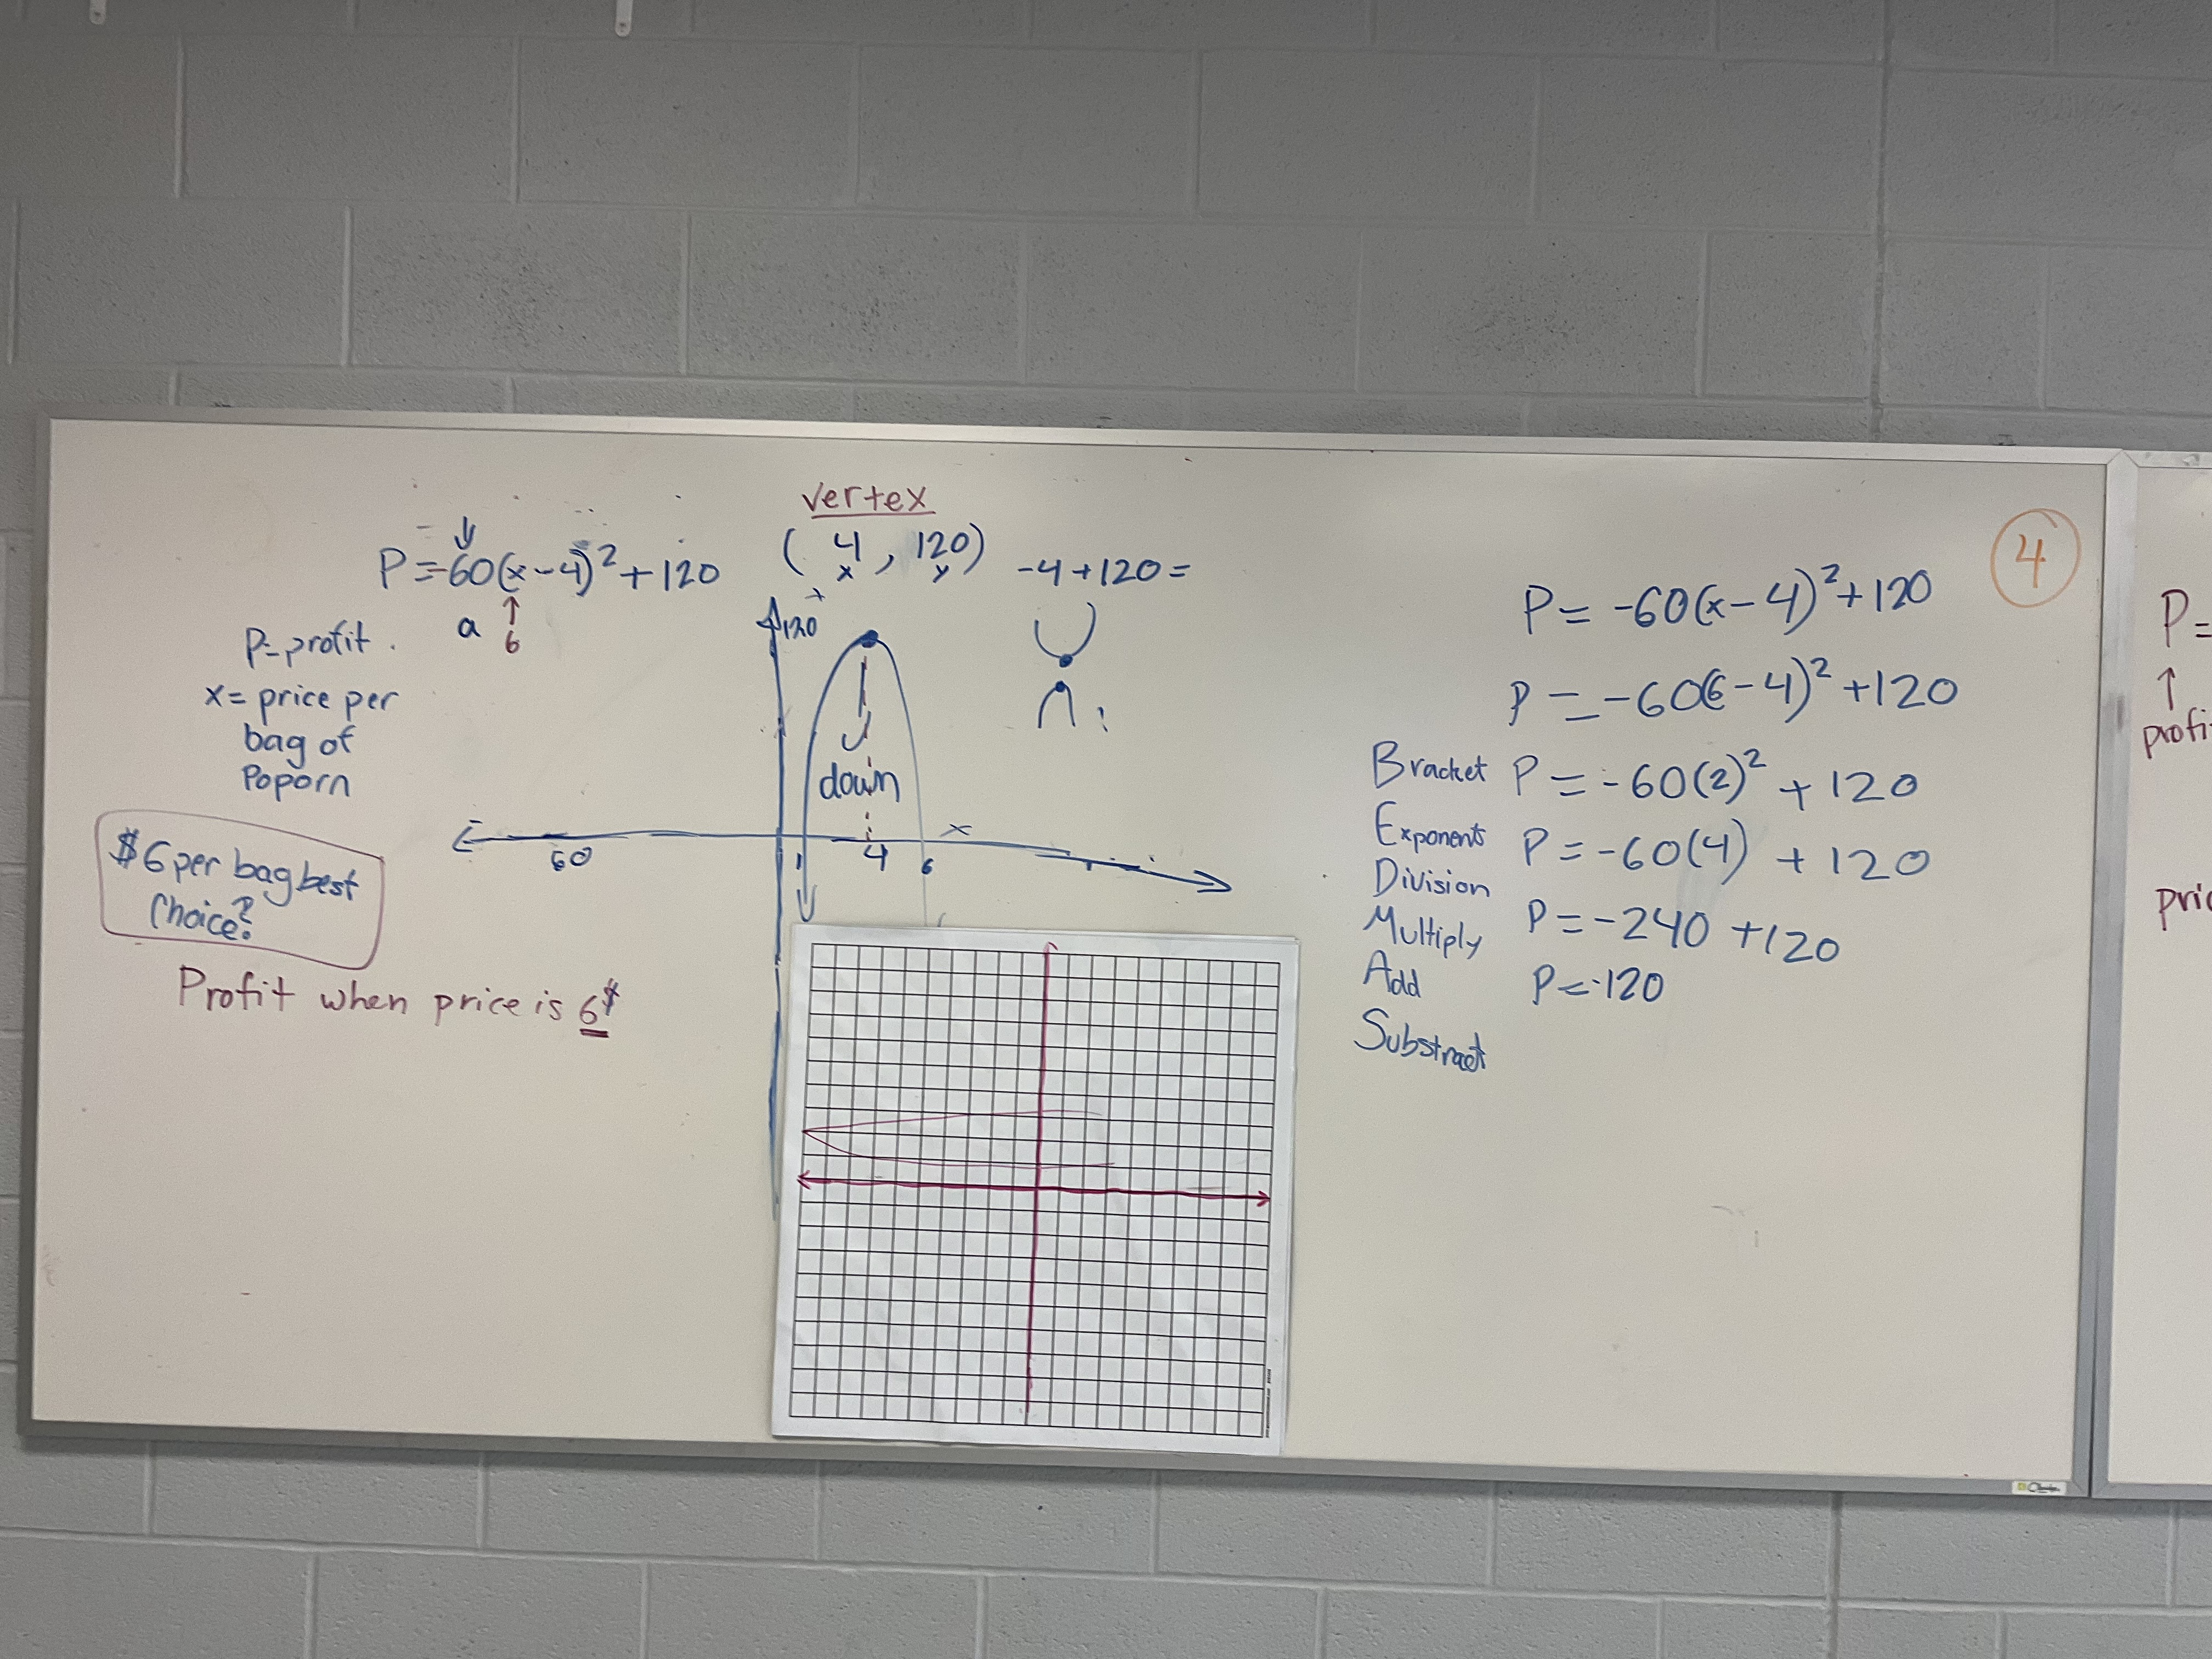 vertex
P=-60(x-4)²+120
a
6
(4, 120)
x y
-4+120=
P=profit.
x= price per
bag of
Poporn
$6 per bag best
choice?
Profit when price is 6$
120
down
x
60
1
4
6
4
P= -60(x-4)²+120
P=-60(6-4)²+120
Bracket P=-60(2)²+120
Exponents P=-60(4)+120
Division
Multiply P=-240+120
Add P=-120
Substract
P=
profi
pric